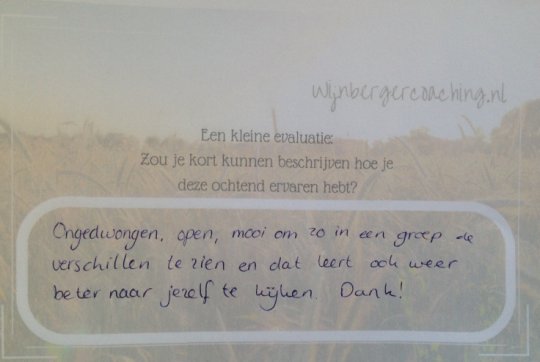 Wijnbergercoaching.nl
Een kleine evaluatie:
Zou je kort kunnen beschrijven hoe je
deze ochtend ervaren hebt?
Ongedwongen, open, mooi om zo in een groep de
verschillen te zien en dat leert ook weer
beter naar jezelf te kijken. Dank!